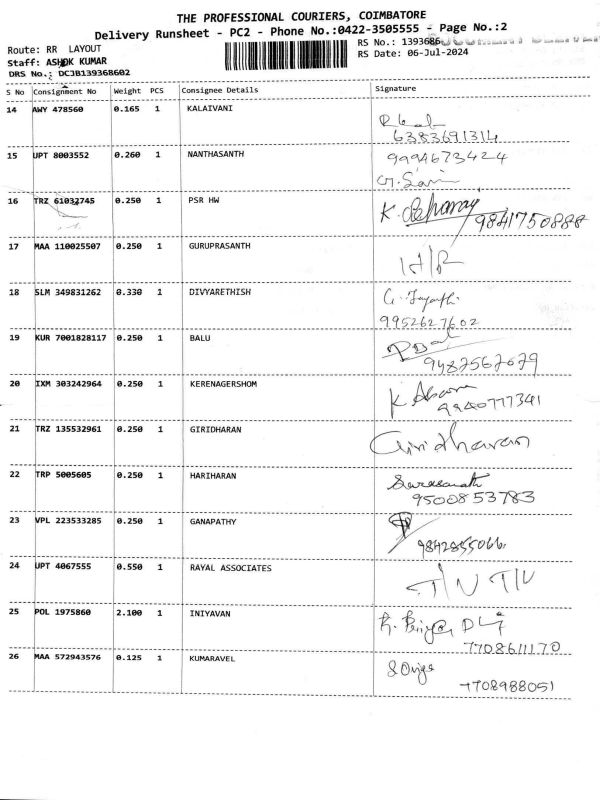 THE PROFESSIONAL COURIERS, COIMBATORE
Delivery Runsheet - PC2 - Phone No.:0422-3505555 - Page No.:2
Route: RR LAYOUT
RS No.: 1393686
Staff: ASHOK KUMAR
RS Date: 06-Jul-2024
DRS No.: DCJB139368602
S No Consignment No Weight PCS Consignee Details Signature
14 AWY 478560 0.165 1 KALAIVANI
6383691314
15 UPT 8003552 0.260 1 NANTHASANTH 9994673424
16 TRZ 61032745 0.250 1 PSR HW K. 9841750888
17 MAA 110025507 0.250 1 GURUPRASANTH
18 SLM 349831262 0.330 1 DIVYARETHISH
9952627602
19 KUR 7001828117 0.250 1 BALU
9487567679
20 IXM 303242964 0.250 1 KERENAGERSHOM K
9940777341
21 TRZ 135532961 0.250 1 GIRIDHARAN Giridharan
22 TRP 5005605 0.250 1 HARIHARAN
9500853783
23 VPL 223533285 0.250 1 GANAPATHY
9842855066
24 UPT 4067555 0.550 1 RAYAL ASSOCIATES
25 POL 1975860 2.100 1 INIYAVAN
7708611170
26 MAA 572943576 0.125 1 KUMARAVEL
7708988051